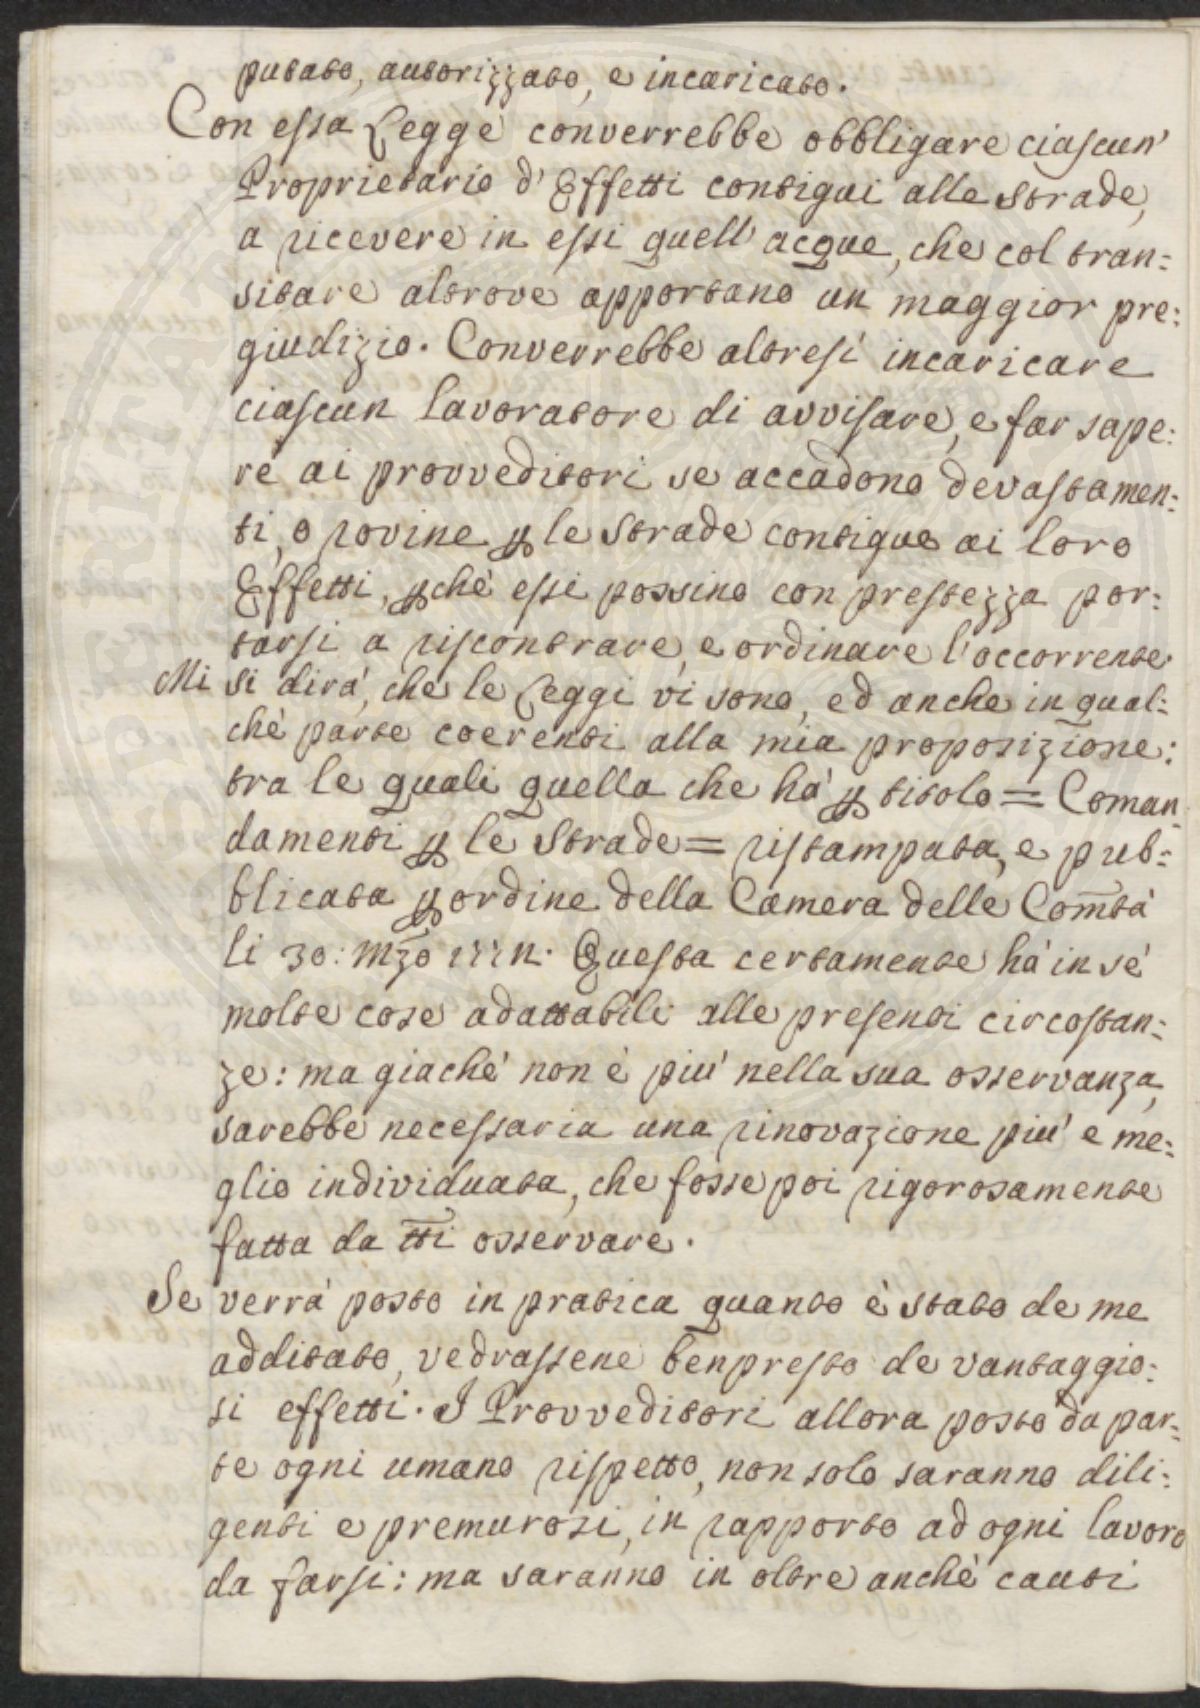 putato, autorizzato, e incaricato.
Con essa Legge converrebbe obbligare ciascun'
Proprietario d'Effetti contigui alle Strade,
a ricevere in essi quell'acque, che col tran=
sitare altrove apportano un maggior pre=
giudizio. Converrebbe altresì incaricare
ciascun lavoratore di avvisare, e far sape=
re ai provveditori se accadono devastamen=
ti, o rovine ꝑ le Strade contigue ai loro
Effetti, ꝑchè essi possino con prestezza por=
tarsi a riscontrare, e ordinare l'occorrente
Mi si dirà, che le Leggi vi sono, ed anche in qual=
chè parte coerenti alla mia proposizione:
tra le quali quella che hà ꝑ titolo = Coman
damenti ꝑ le Strade = ristampata, e pub=
blicata ꝑ ordine della Camera delle Com̄tà
li 30: Mz̄o. Questa certamente hà in sè
molte cose adattabili alle presenti circostan=
ze: ma giachè non è più nella sua osservanza,
sarebbe necessaria una rinovazione più e me=
glio individuata, che fosse poi rigorosamente
fatta da tt̄i osservare.
Se verrà posto in pratica quanto è stato de me
additato, vedrassene benpresto de vantaggio=
si effetti. I Provveditori allora posto da par=
te ogni umano rispetto, non solo saranno dili=
genti e premurosi, in rapporto ad ogni lavoro
da farsi: ma saranno in oltre anchè cauti